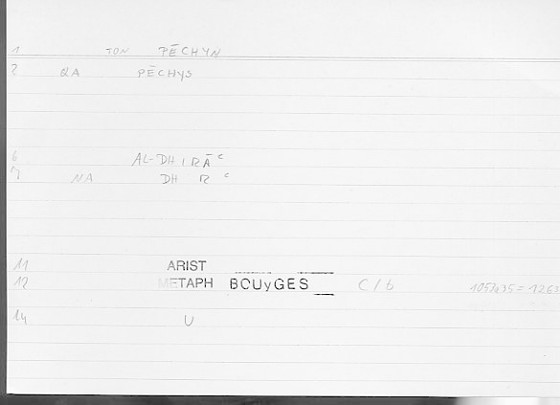 1 TON PĒCHYN
2 QA PĒCHYS
6 AL-DHIRĀ c
7 NA DH R c
11 ARIST
12 METAPH BOUyGES C/6
14 U